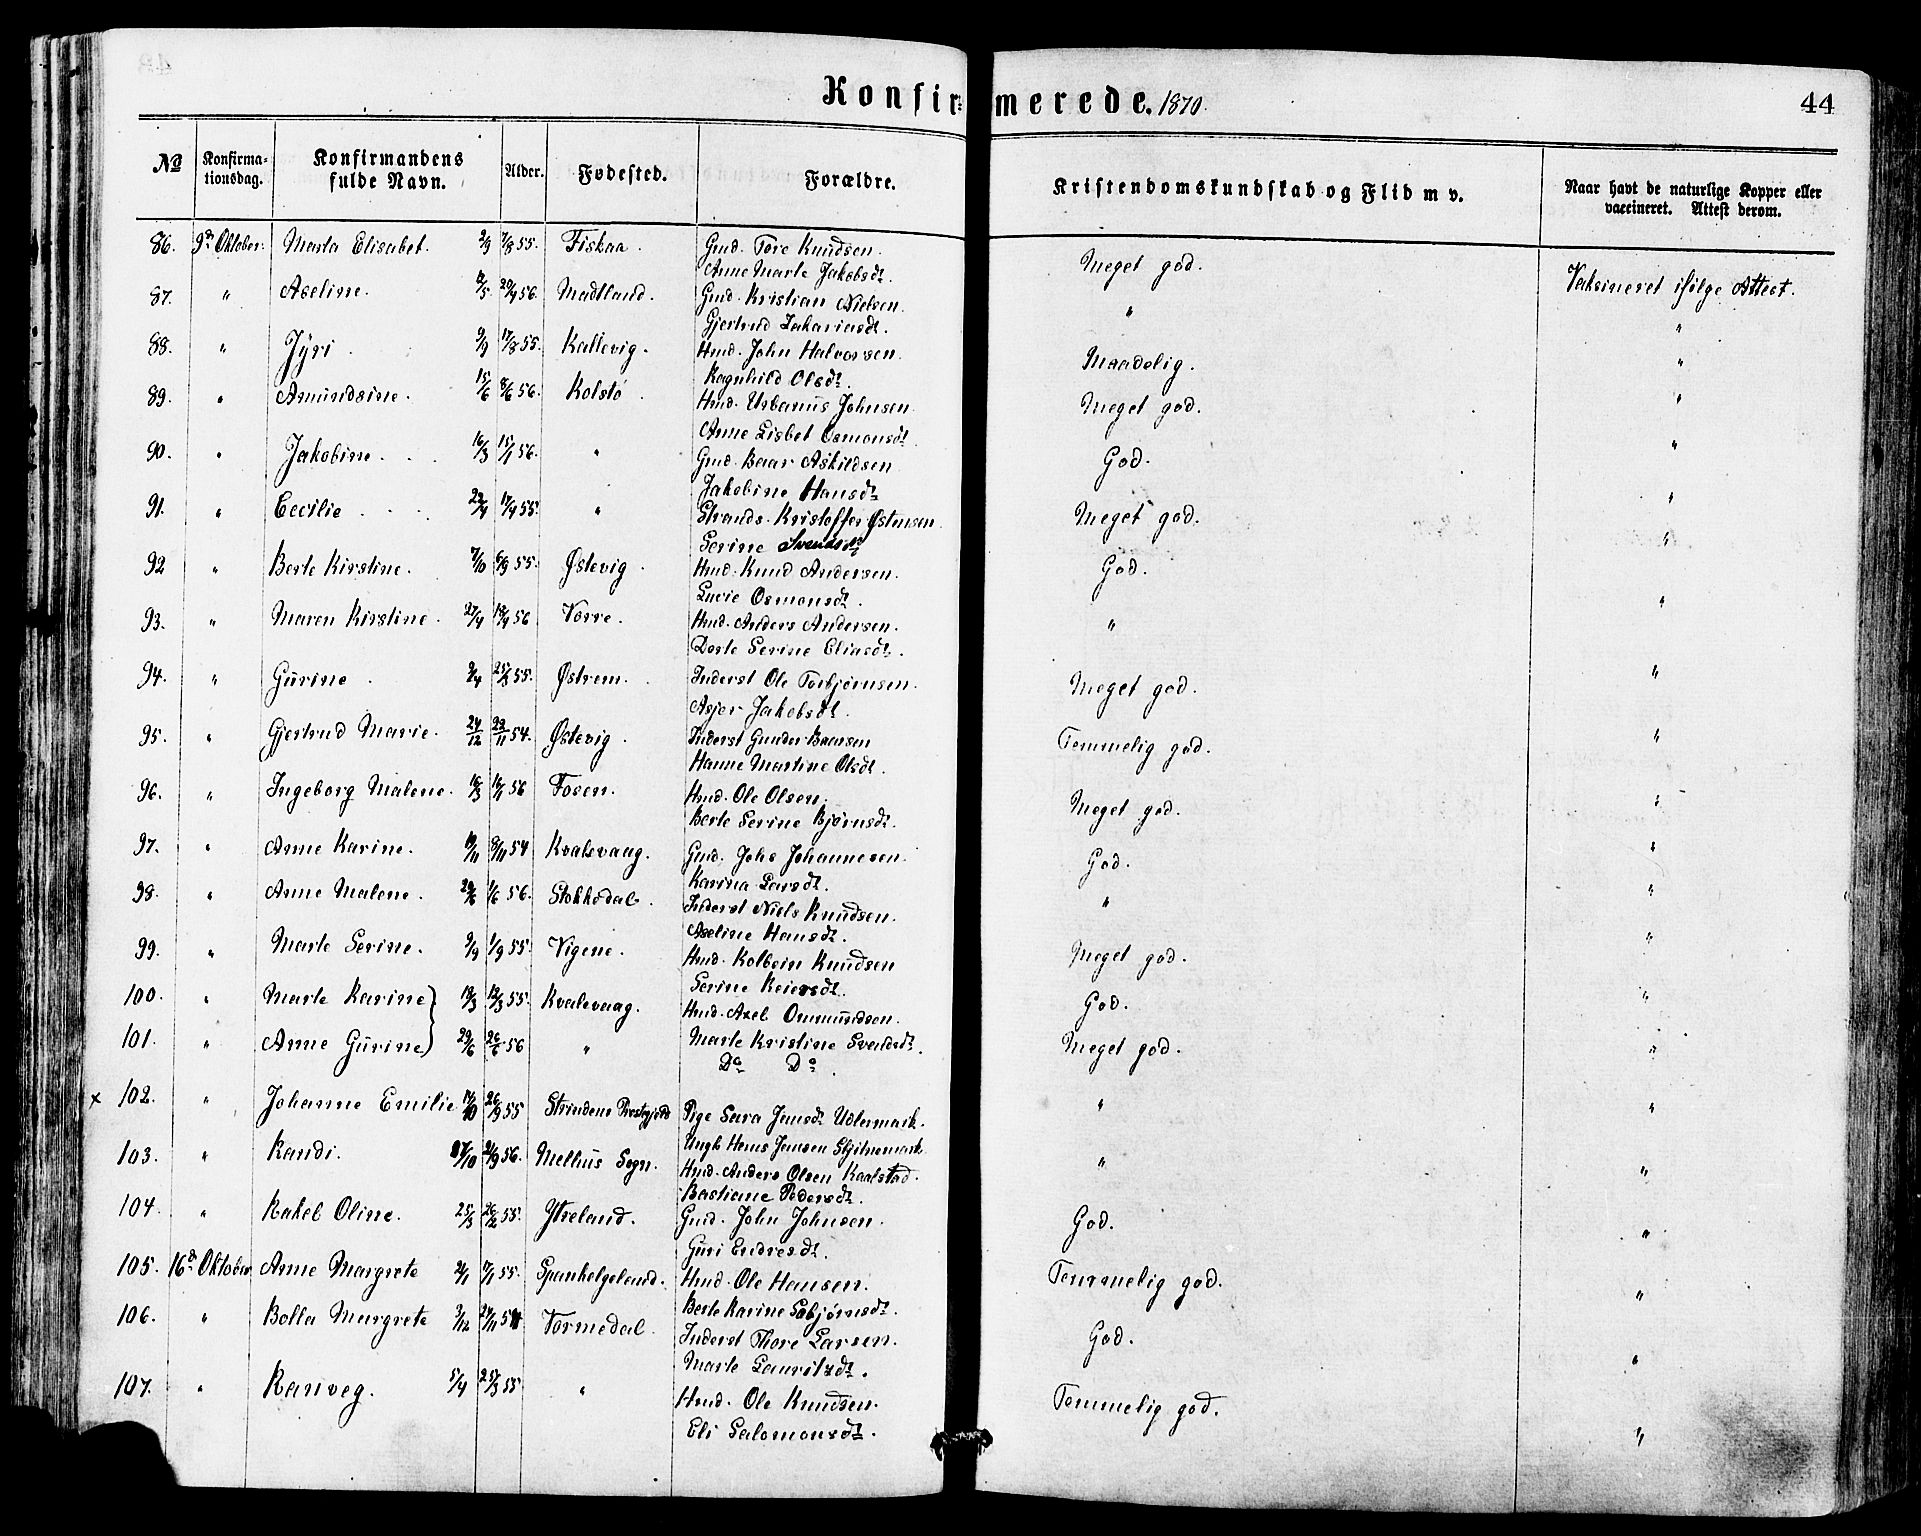 Konfirmerede. 1870.
44
No Konfirmationsdag. Konfirmandens fulde Navn. Alder. Fødested. Forældre. Kristendomskundskab og Flid m v. Naar havt de naturlige Kopper eller vaccineret. Attest derom.
86. 9de Oktober. Marta Elisabet. 2/9 7/8 55. Fiskaa. Gmd. Tore Knudsen. Meget god. Vaksineret ifölge Attest.
Anne Marte Jakobsdt.
87. " Aseline. 20/4 56. Madtland. Gmd. Kristian Nielsen. " "
Gjertrud Zakariasdt.
88. " Jyri. 9/9 17/8 55. Kallevig. Hmd. John Halvorsen. Maadelig. "
Ragnhild Olsdt.
89. " Amundsine. 15/6 8/6 56. Kolstø. Hmd. Urbanus Johnsen. Meget god. "
Anne Lisbet Osmonsdt.
90. " Jakobine. 16/3 15/1 56. " Gmd. Baar Askildsen. God. "
Jakobine Hansdt.
91. " Cecilie 22/4 17/4 55. " Strands. Kristoffer Østensen. Meget god. "
Serine Svendsdt.
92 " Berte Kirstine. 7/10 6/9 55. Østevig. Hmd. Knud Andersen. God. "
Lucie Osmonsdt.
93. " Maren Kirstine. 27/4 18/4 56 Vorre. Hmd. Anders Andersen. " "
Dorte Serine Eliasdt.
94. " Gurine. 2/4 25/3 55. Østrem. Inderst Ole Torbjørnsen. Meget god. "
Asjer Jakobsdt.
95. " Gjertrud Marie. 24/12 22/11 54. Østevig. Inderst Gunder Baarsen Temmelig god. "
Hanne Martine Olsdt.
96. " Ingeborg Malene. 16/3 56 Fosen. Hmd. Ole Olsen. Meget god. "
Berte Serine Bjørnsdt.
97. " Anne Karine. 19/11 8/11 54 Kvalevaag. Gmd. Johs Johannesen. God. "
Karina Larsdt.
98. " Anne Malene. 29/6 1/6 56. Stokkedal. Inderst Niels Knudsen. " "
Aseline Hansdt.
99. " Marte Serine. 9/9 1/9 55. Vigene. Hmd. Kolbein Knudsen Meget god. "
Serine Reiersdt.
100. " Marte Karine 19/3 12/3 55. Kvalevaag. Hmd. Axel Ommundsen. God. "
Marte Kristine Svendsdt.
101. " Anne Gurine 29/6 26/6 56 " Do Do. Meget god. "
x 102. " Johanne Emilie 17/10 26/9 55 Strindens Prestegjeld Pige Sara Jansdt Udlermark. " "
Ungk Hans Jensen Skjitnemark.
103. " Randi. 27/10 2/9 56. Melhus Sogn. Hmd. Anders Olsen Kaalstad. " "
Bastiane Pedersdt.
104. " Rakel Oline. 25/3 26/2 55. Ytreland. Gmd. John Johnsen. God. "
Guri Endresdt.
105. 16de Oktober Anne Margrete 2/1 17/1 55. Spanhelgeland. Hmd. Ole Hansen. Temmelig god. "
Berte Karine Sebjørnsdt.
106. " Bolla Margrete 3/12 24/11 54 Vormedal. Inderst Thore Larsen. God. "
Marte Lauritzdt.
107. " Ranveg. 5/4 25/3 55 " Hmd. Ole Knudsen. Temmelig god. "
Eli Salomonsdt.